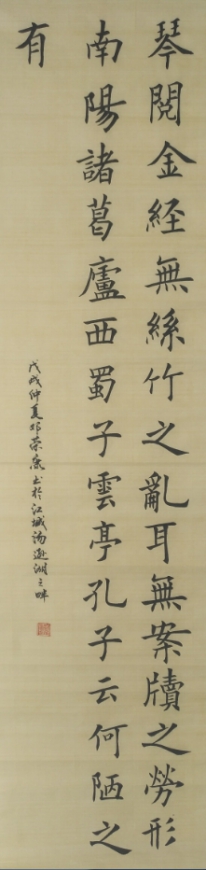 琴閱金経無絲竹之亂耳無案牘之勞形
南陽諸葛廬西蜀子雲亭孔子云何陋之
有
戊戌仲夏鄧榮魚書於江城湯遜湖之畔